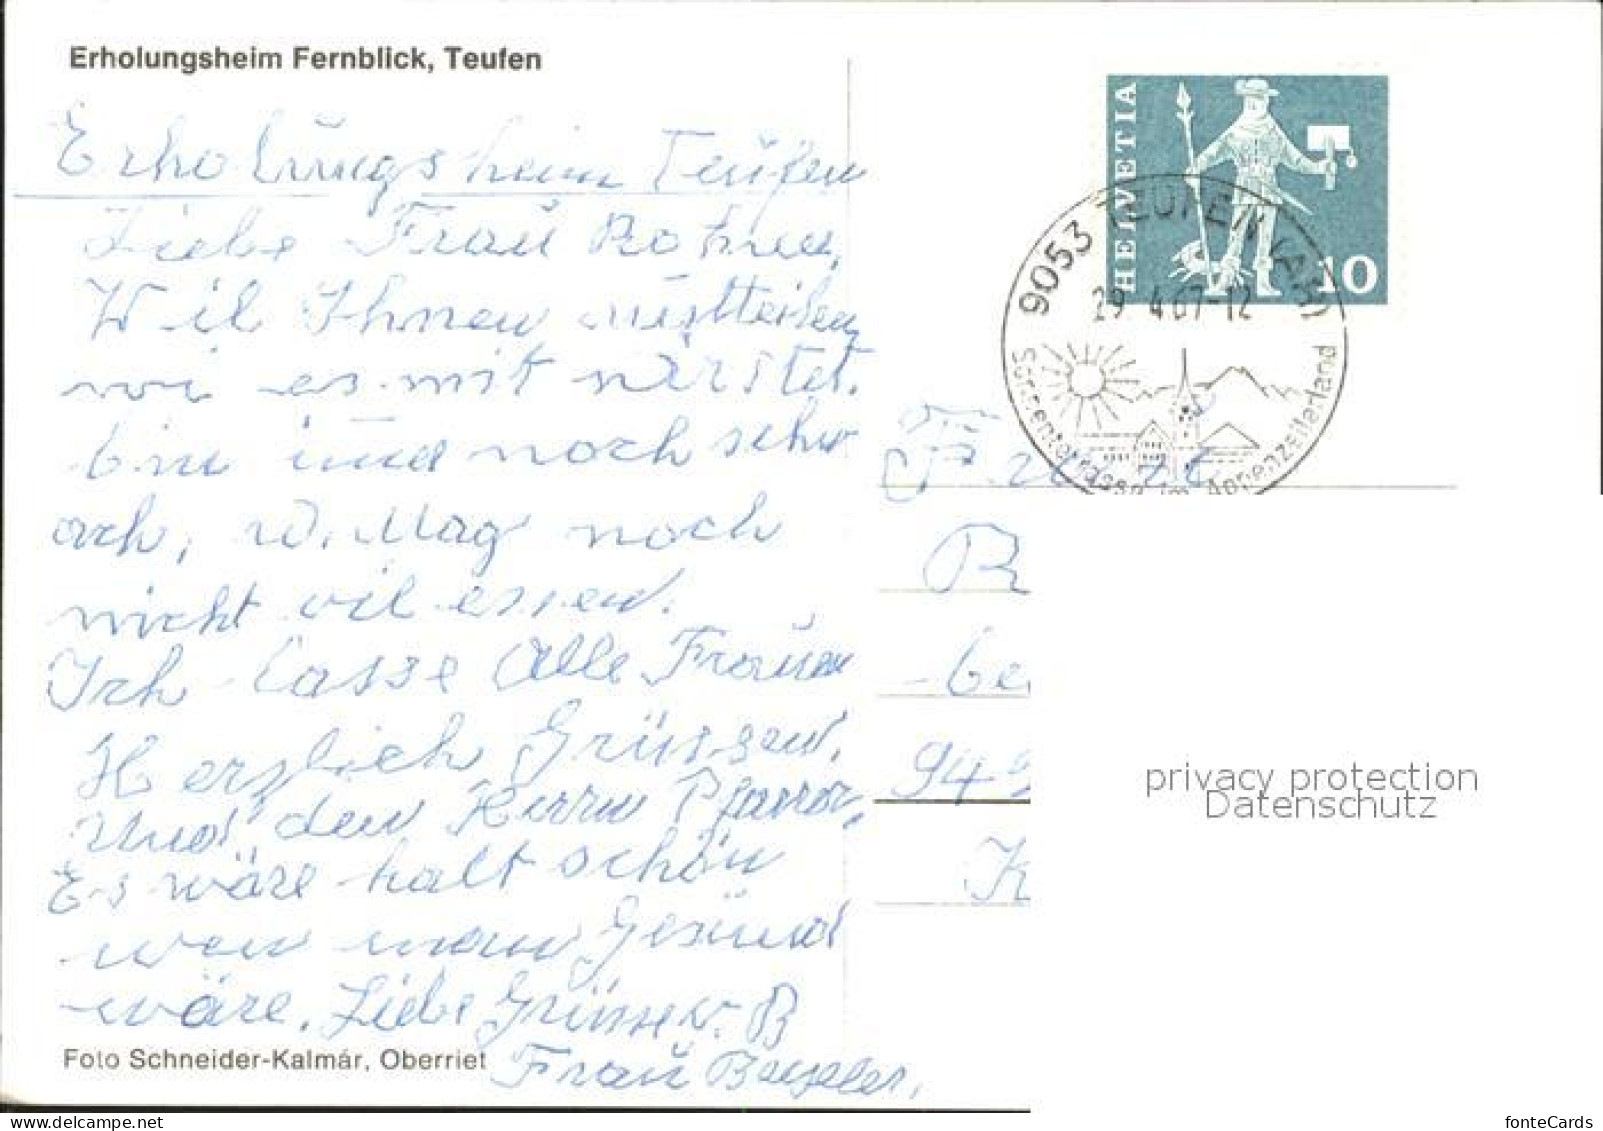 Erholungsheim Fernblick, Teufen
Erholungsheim Teufen
Liebe Frau Rohner,
Wil Ihnen mitteilen
wi es mir
bin und noch schw
ach, Mag noch
nicht vil essen.
Ich lasse Alle Frauen
Herzlich Grüssen,
und den Herrn Pfarrer,
Es wäre halt schön
wen man Gesund
wäre. Liebe Grüsse v. B
Frau
Foto Schneider-Kalmár, Oberriet
HELVETIA
10
9053 TEUFEN (AR)
29.4.67-12
Sonnenterrasse im Appenzellerland
R
be
949
K
privacy protection
Datenschutz
fonteCards